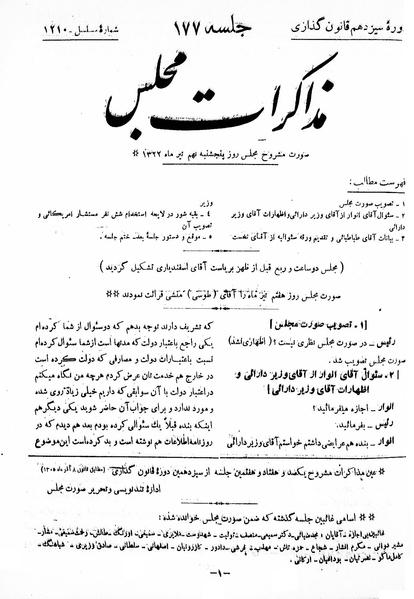 دورهٔ سیزدهم قانون گذاری
جلسه ۱۷۷
شمارهٔ مسلسل - ۱۲۱۰
مذاکرات مجلس
صورت مشروح مجلس روز پنجشنبه نهم تیر ماه ۱۳۲۲ *
فهرست مطالب:
۱ - تصویب صورت مجلس
۲ - سئوال آقای انوار از آقای وزیر دارائی و اظهارات آقای وزیر
دارائی
۳ - بیانات آقای طباطبائی و تقدیم ورقه سئوالیه از آقای نخست
وزیر
۴ - بقیه شور در لایحه استخدام شش نفر مستشار امریکائی و
تصویب آن
۵ - موقع و دستور جلسهٔ بعد - ختم جلسه.
(مجلس دو ساعت و ربع قبل از ظهر بریاست آقای اسفندیاری تشکیل گردید)
صورت مجلس روز هفتم تیر ماه را آقای (طوسی) منشی قرائت نمودند **
[۱ - تصویب صورت مجلس]
رئیس - در صورت مجلس نظری نیست؟ (اظهاری نشد)
صورت مجلس تصویب شد.
[۲ - سئوال آقای انوار از آقای وزیر دارائی و
اظهارات آقای وزیر دارائی]
انوار - اجازه میفرمائید؟
رئیس - بفرمائید.
انوار - بنده هم عرایضی داشتم خواستم آقای وزیر دارائی
که تشریف دارند توجه بدهم که دو سئوال از شما کرده‌ام
یکی راجع باعتبار دولت که مدتها است از شما سئوال کرده‌ام
نسبت باعتبارات دولت و مصارفی که دولت کرده است
در خارج هم خدمت‌تان عرض کردم هر چه من نگاه میکنم
در اعتبار دولت با آن سوابقی که داریم خیلی زیاده روی شده
و مورد ندارد و برای جواب آن حاضر شوید یکی دیگر هم
اینکه بنده قبلاً یک سئوالی کرده بودم بعد هم دیدم که در
روزنامه اطلاعات هم نوشته است و بد کرده است این موضوع
* عین مذاکرات مشروح یکصد و هفتاد و هفتمین جلسه از سیزدهمین دورهٔ قانون گذاری (مطابق قانون ۸ آذر ماه ۱۳۰۵)
ادارهٔ تندنویسی و تحریر صورت مجلس
** اسامی غائبین جلسه گذشته که ضمن صورت مجلس خوانده شده:
- ۱ -